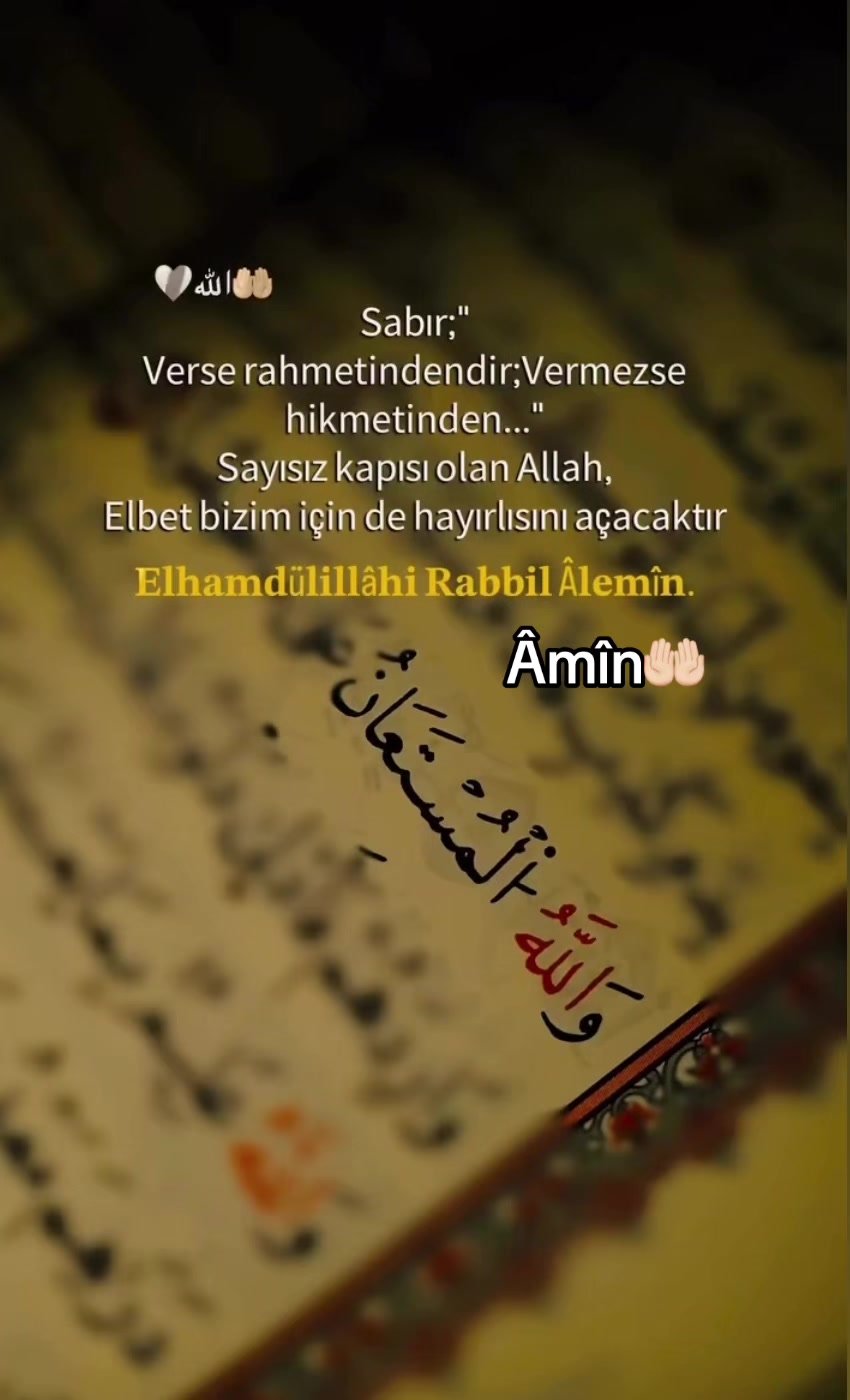 🤍الله🤲🏼
Sabır;"
Verse rahmetindendir;Vermezse
hikmetinden..."
Sayısız kapısı olan Allah,
Elbet bizim için de hayırlısını açacaktır
Elhamdülillâhi Rabbil Âlemîn.
Âmîn🤲🏻
وَاللَّهُ الْمُسْتَعَانُ